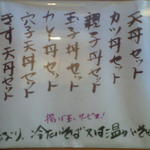 天丼セット
カツ丼セット
親子丼セット
玉子丼セット
カレー丼セット
穴子天丼セット
きす天丼セット
揚げ玉サービス!
冷たいそば又は温かいそば